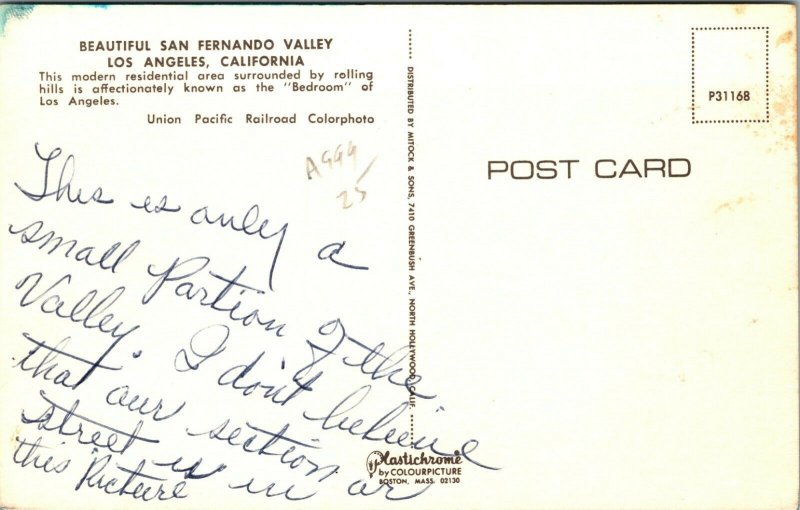 BEAUTIFUL SAN FERNANDO VALLEY
LOS ANGELES, CALIFORNIA
This modern residential area surrounded by rolling
hills is affectionately known as the "Bedroom" of
Los Angeles.
Union Pacific Railroad Colorphoto
A999/
25
This is only a
small Partion of the
Valley. I don't believe
that our section or
street is in
this Picture
DISTRIBUTED BY MITOCK & SONS, 7410 GREENBUSH AVE., NORTH HOLLYWOOD, CALIF.
Plastichrome
by COLOURPICTURE
BOSTON, MASS. 02130
POST CARD
P31168